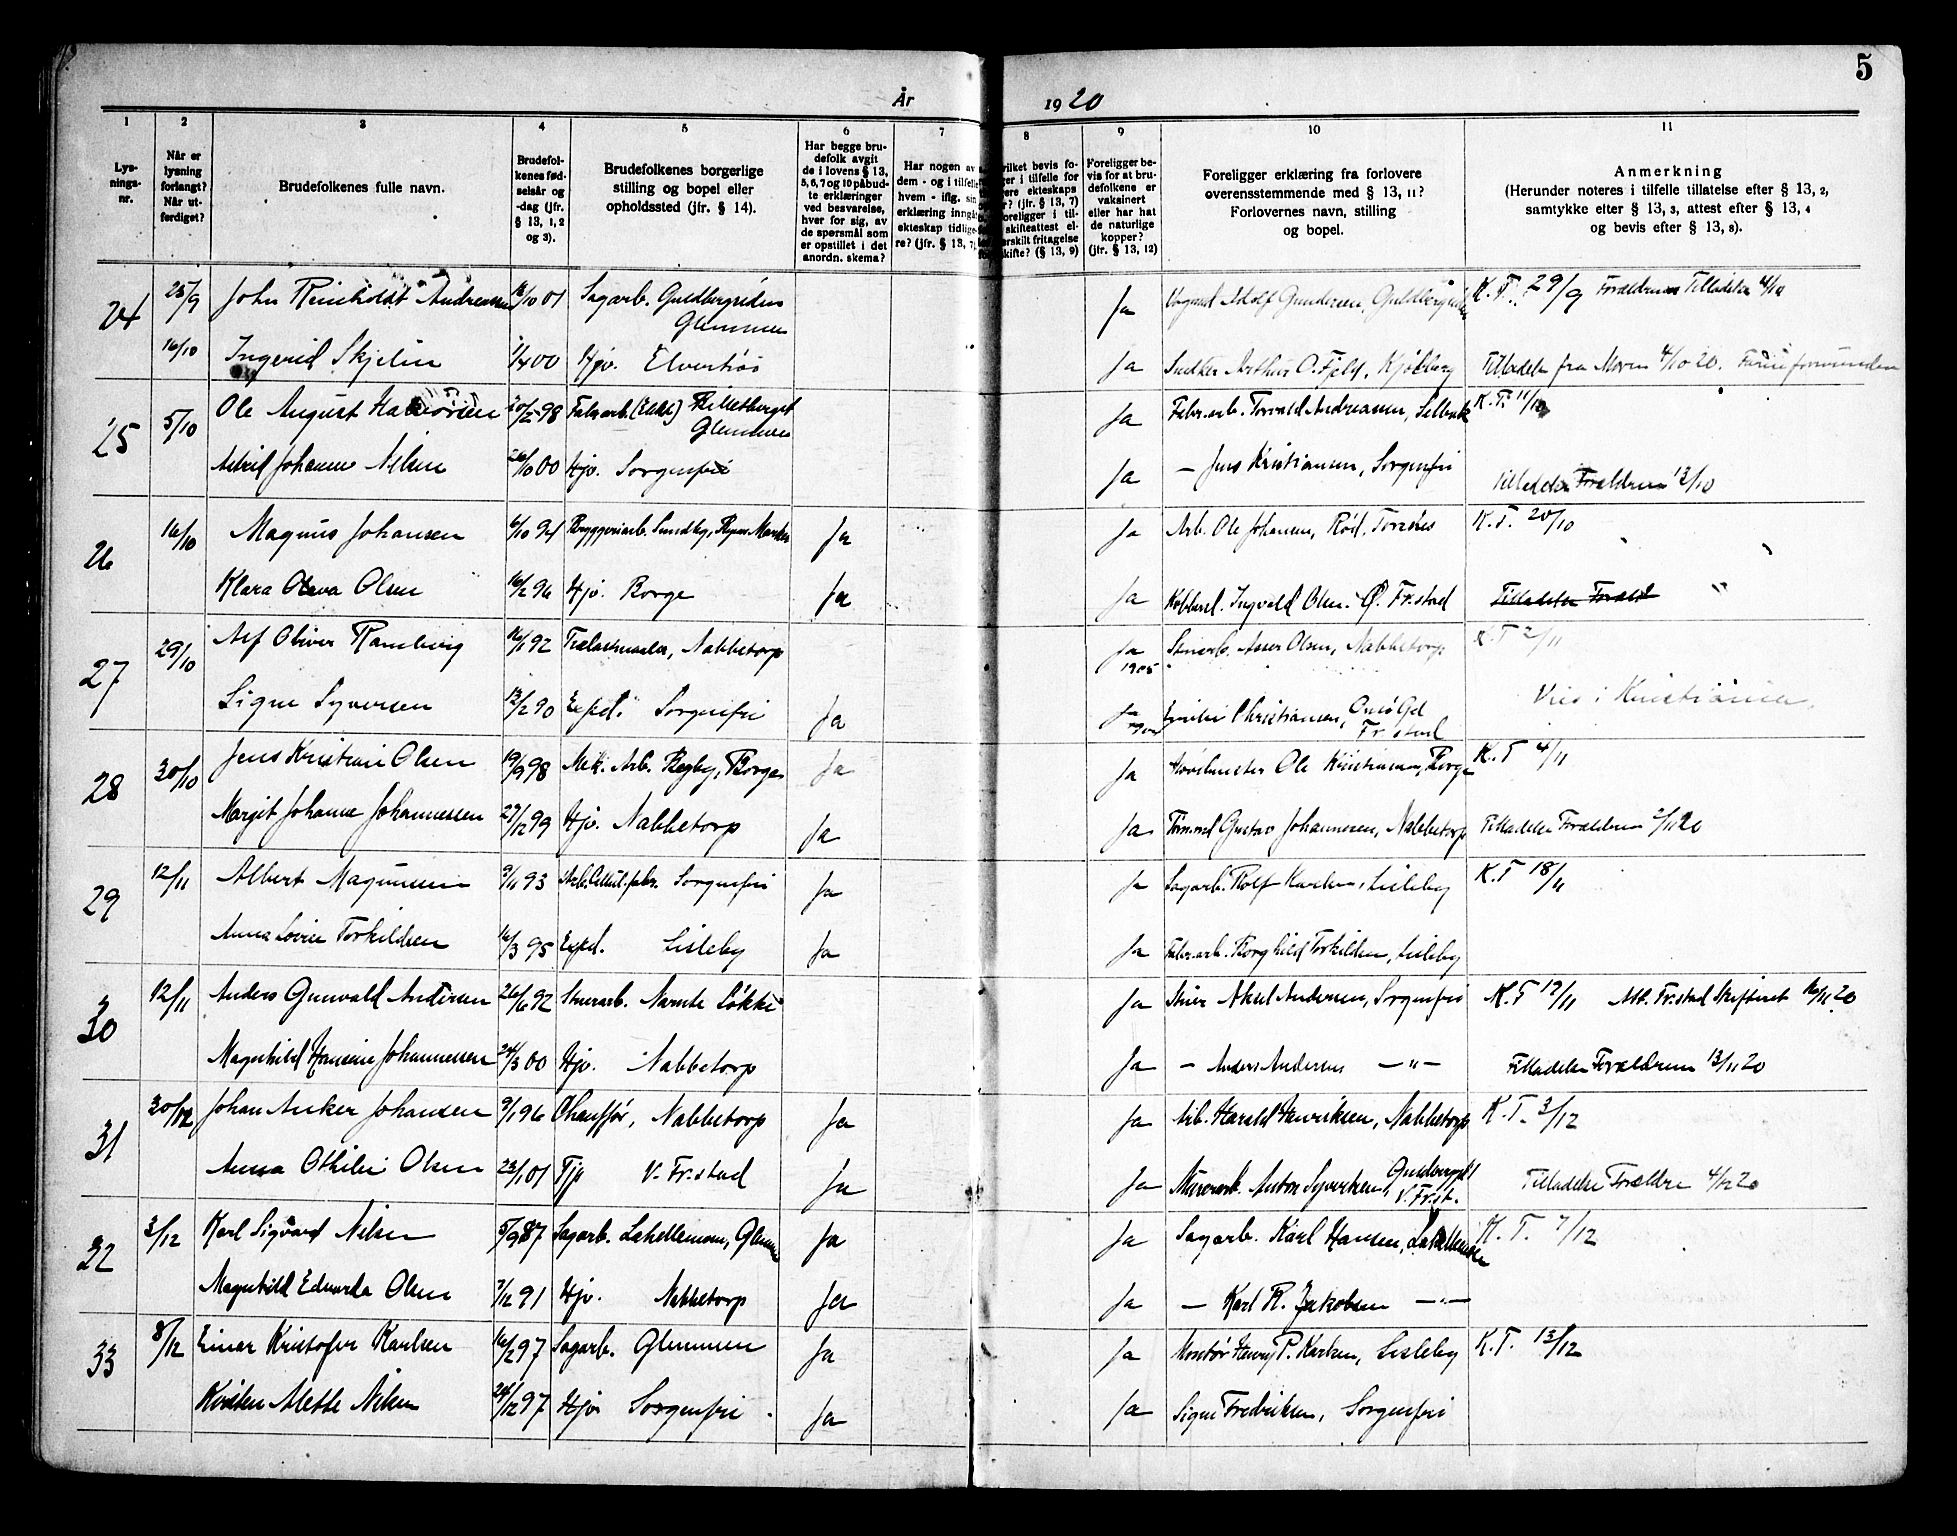 5
År 1920
1 2 3 4 5 6 7 8 9 10 11
Lys-
nings-
nr.
Når er
lysning
forlangt?
Når ut-
ferdiget?
Brudefolkenes fulle navn.
Brudefol-
kenes fød-
selsår og
-dag (jfr.
§ 13, 1, 2
og 3).
Brudefolkenes borgerlige
stilling og bopel eller
opholdssted (jfr. § 14).
Har begge bru-
defolk avgit
de i lovens § 13,
5, 6, 7 og 10 påbud-
te erklæringer
ved besvarelse,
hver for sig, av
de spørsmål som
er opstillet i det
anordn. skema?
Har nogen av
dem - og i tilfelle
hvem - iflg. sin
erklæring inngåt
ekteskap tidlige-
re? (jfr. § 13, 7)
rilket bevis fo-
ger i tilfelle for
ere ekteskaps
r? (jfr. § 13, 7)
oreligger i til-
skifteattest el-
erskilt fritagelse
kifte? (§ 13, 9)
Foreligger be-
vis for at bru-
defolkene er
vaksinert
eller har hat
de naturlige
kopper?
(jfr. § 13, 12)
Foreligger erklæring fra forlovere
overensstemmende med § 13, 11?
Forlovernes navn, stilling
og bopel.
Anmerkning
(Herunder noteres i tilfelle tillatelse efter § 13, 2,
samtykke efter § 13, 3, attest efter § 13, 4
og bevis efter § 13, 8).
24 25/9 John Reinholdt Andreassen 01 Sagarb. Guldbergsiden Ja Adolf Gundersen, K.T. 29/9 Forældrenes Tilladelse
Glemmen
16/10 Ingerid Skjelin 1/4 00 Hjv. Elverhøi Ja Snekker Arthur O. Kjølberg Tilladelse fra Moren 4/10 20.
25 5/10 Ole August 20/2 98 Fabrarb. Glemmen Ja Fabr.arb. Torvald Andreassen, K.T. 11/10
Astrid Johanne Nilsen 26/10 00 Hjv. Sorgenfri Ja — Jens Kristiansen, Sorgenfri Tilladelse Forældrene 12/10
26 16/10 Magnus Johansen 6/10 94 Bryggeriarb. Sundby, Ja Ja Arb. Ole Johansen, Rød, Torsnes K.T. 20/10
Klara Olava Olsen 16/2 96 Hjv. Borge Ja Ja Ingvald Olsen. Fr.stad Tilladelse Foræld "
27 29/10 Alf Oliver Ramberg 16/1 92 Trælastmaaler, Nabbetorp Ja 1905 Asser Olsen, Nabbetorp K.T 2/11
Signe Syversen 12/2 90 Exped. Sorgenfri Ja Ja Christiansen, Fr.stad Vies i Kristiania.
28 30/10 Jens Kristian Olsen 19/9 98 Mek. Arb. Begby, Borge Ja Ja Høvelmester Ole Kristiansen, Borge K.T 4/11
Margit Johanne Johannessen 27/12 99 Hjv. Nabbetorp Ja Ja Tømmerm Gustav Johannesen, Nabbetorp Tilladelse Forældrene 2/11 20
29 12/11 Albert Magnussen 9/11 93 Arb. Sorgenfri Ja Ja Sagarb. Rolf Karlsen, Lisleby K.T 18/11
Anna Lovise Torkildsen 16/3 95 Exped. Lisleby Ja Ja Fabr.arb. Borghild Torkildsen, Lisleby
30 12/11 Anders Gunvald Andersen 26/6 92 Stuerarb. Nærnte Løkke Ja Stuer Aksel Andersen, Sorgenfri K.T 19/11 Att. Fr.stad Skifteret 16/11 20
Magnhild Hansine Johannessen 24/3 00 Hjv. Nabbetorp Ja — Anders Andersen —"— Tilladelse Forældrene 13/11 20
31 30/12 Johan Anker Johansen 9/1 96 Chauffør, Nabbetorp Ja Ja Arb. Harald Henriksen, Nabbetorp K.T. 3/12
Anna Othilie Olsen 23/1 01 Tjp V. Fr.stad Ja Ja Murerarb. Anton Syvertsen, V. Fr.st. Tilladelse Forældre 4/12 20
32 3/12 Karl Sigvard Nilsen 5/9 87 Sagarb. Lahellemoen, Glemmen Ja Ja Sagarb. Karl Hansen, Lahellemoen K.T. 7/12
Magnhild Edvarda Olsen 7/12 91 Hjv. Nabbetorp Ja Ja — Karl R. Jakobsen —"—
33 8/12 Einar Kristofer Karlsen 16/2 97 Sagarb. Glemmen Ja Ja Montør Henry P. Karlsen, Lisleby K.T. 13/12
Kirsten Mette Nilsen 24/12 97 Hjv Sorgenfri Ja Ja Signe Fredriksen, Sorgenfri